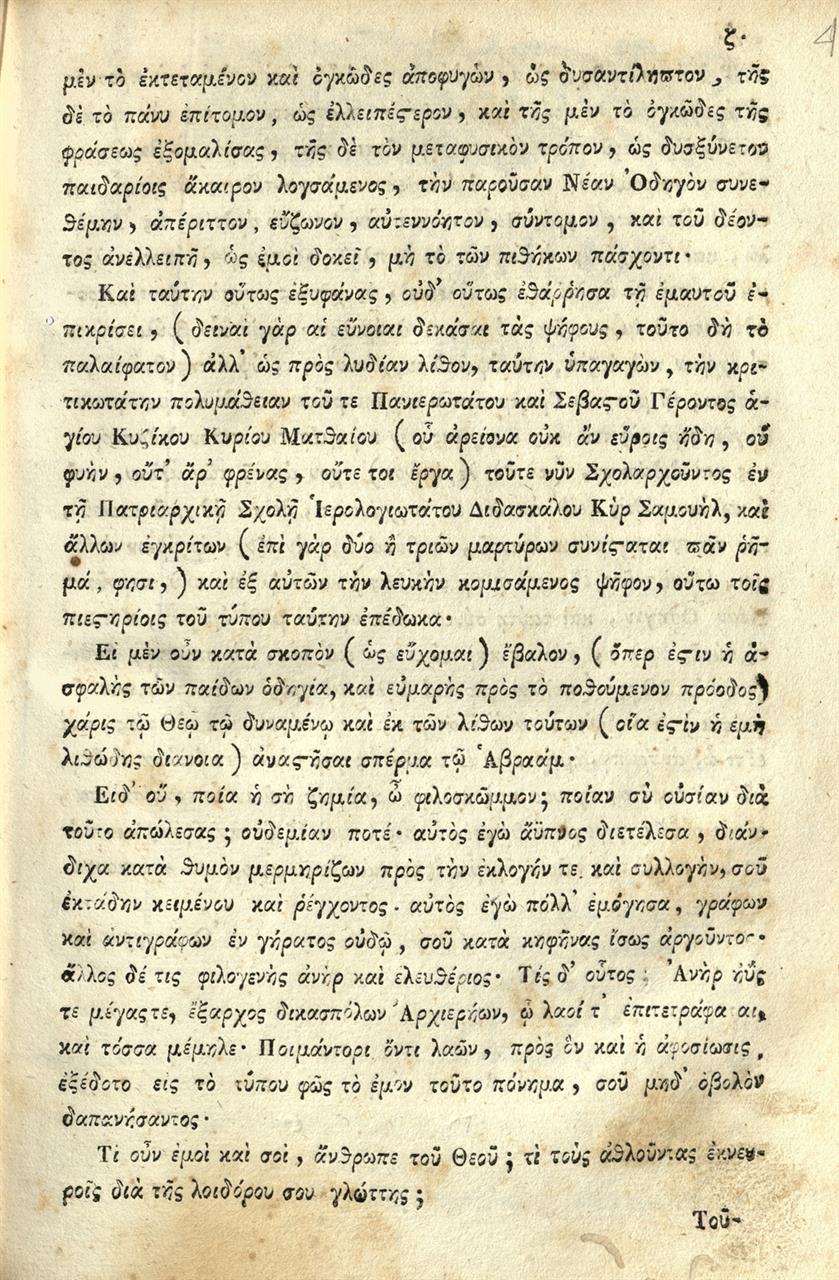 ζ·
4
μὲν τὸ ἐκτεταμένον καὶ ὀγκῶδες ἀποφυγὼν, ὡς δυσαντίληπτον, τῆς
δὲ τὸ πάνυ ἐπίτομον, ὡς ἐλλειπέστερον, καὶ τῆς μὲν τὸ ὀγκῶδες τῆς
φράσεως ἐξομαλίσας, τῆς δὲ τὸν μεταφυσικὸν τρόπον, ὡς δυσξύνετον
παιδαρίοις ἄκαιρον λογσάμενος, τὴν παροῦσαν Νέαν Ὁδηγὸν συνε-
θέμην, ἀπέριττον, εὔζωνον, αὐτεννόητον, σύντομον, καὶ τοῦ δέον-
τος ἀνελλειπῆ, ὡς ἐμοὶ δοκεῖ, μὴ τὸ τῶν πιθήκων πάσχοντι·
Καὶ ταύτην οὕτως ἐξυφάνας, οὐδ' οὕτως ἐθάῤῥησα τῇ ἐμαυτοῦ ἐ-
πικρίσει, (δειναὶ γὰρ αἱ εὔνοιαι δεκάσαι τὰς ψήφους, τοῦτο δὴ τὸ
παλαίφατον) ἀλλ' ὡς πρὸς λυδίαν λίθον, ταύτην ὑπαγαγὼν, τὴν κρι-
τικωτάτην πολυμάθειαν τοῦ τε Πανιερωτάτου καὶ Σεβαστοῦ Γέροντος ἁ-
γίου Κυζίκου Κυρίου Ματθαίου (οὗ ἀρείονα οὐκ ἂν εὕροις ἤδη, οὐ
φυὴν, οὔτ' ἂρ' φρένας, οὔτε τοι ἔργα) τοῦτε νῦν Σχολαρχοῦντος ἐν
τῇ Πατριαρχικῇ Σχολῇ Ἱερολογιωτάτου Διδασκάλου Κὺρ Σαμουὴλ, καὶ
ἄλλων ἐγκρίτων (ἐπὶ γὰρ δύο ἢ τριῶν μαρτύρων συνίσταται πᾶν ῥῆ-
μά, φησι,) καὶ ἐξ αὐτῶν τὴν λευκὴν κομισάμενος ψῆφον, οὕτω τοῖς
πιεστηρίοις τοῦ τύπου ταύτην ἐπέδωκα·
Εἰ μὲν οὖν κατὰ σκοπὸν (ὡς εὔχομαι) ἔβαλον, (ὅπερ ἐστιν ἡ ἀ-
σφαλὴς τῶν παίδων ὁδηγία, καὶ εὐμαρὴς πρὸς τὸ ποθούμενον πρόοδος)
χάρις τῷ Θεῷ τῷ δυναμένῳ καὶ ἐκ τῶν λίθων τούτων (οἵα ἐστὶν ἡ ἐμὴ
λιθώδης διάνοια) ἀναστῆσαι σπέρμα τῷ Ἁβραάμ·
Ειδ' οὔ, ποία ἡ σὴ ζημία, ὦ φιλοσκῶμμον; ποίαν σὺ οὐσίαν διὰ
τοῦτο ἀπώλεσας; οὐδεμίαν ποτέ· αὐτὸς ἐγὼ ἄϋπνος διετέλεσα, διάν-
διχα κατὰ θυμὸν μερμηρίζων πρὸς τὴν ἐκλογήν τε καὶ συλλογὴν, σοῦ
ἐκτάδην κειμένου καὶ ῥέγχοντος· αὐτὸς ἐγὼ πόλλ' ἐμόγησα, γράφων
καὶ ἀντιγράφων ἐν γήρατος οὐδῷ, σοῦ κατὰ κηφῆνας ἴσως ἀργοῦντος·
ἄλλος δέ τις φιλογενὴς ἀνὴρ καὶ ἐλευθέριος· Τίς δ' οὗτος; Ἀνὴρ ἠΰς
τε μέγας τε, ἔξαρχος δικασπόλων Ἀρχιερήων, ᾧ λαοί τ' ἐπιτετράφαται,
καὶ τόσσα μέμηλε· Ποιμάντορι ὄντι λαῶν, πρὸς ὃν καὶ ἡ ἀφοσίωσις,
ἐξέδοτο εἰς τὸ τύπου φῶς τὸ ἐμὸν τοῦτο πόνημα, σοῦ μηδ' ὀβολὸν
δαπανήσαντος·
Τί οὖν ἐμοὶ καὶ σοὶ, ἄνθρωπε τοῦ Θεοῦ; τί τοὺς ἀθλοῦντας ἐκνευ-
ροῖς διὰ τῆς λοιδόρου σου γλώττης;
Τοῦ-